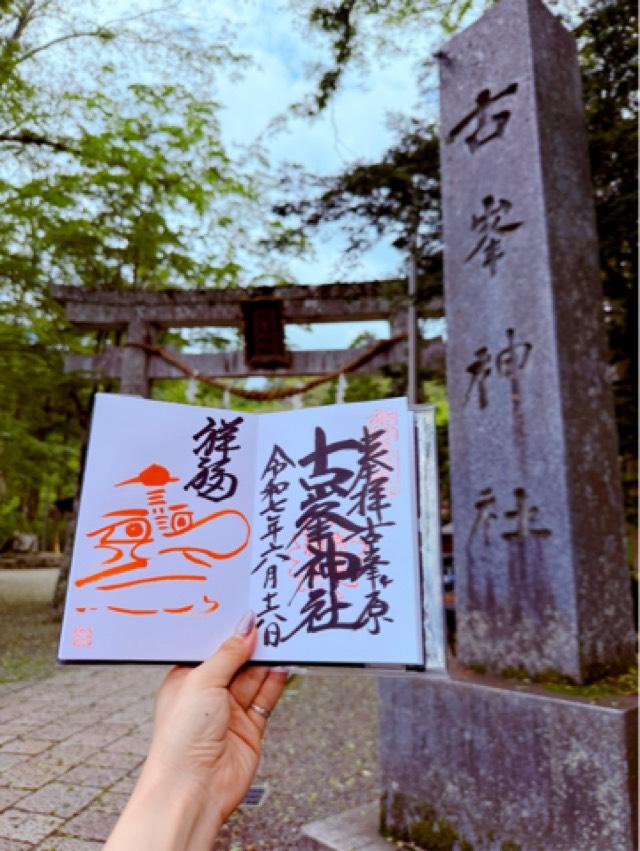 古峯神社
奉拝古峯ヶ原
古峯神社
令和七年六月十六日
祥福